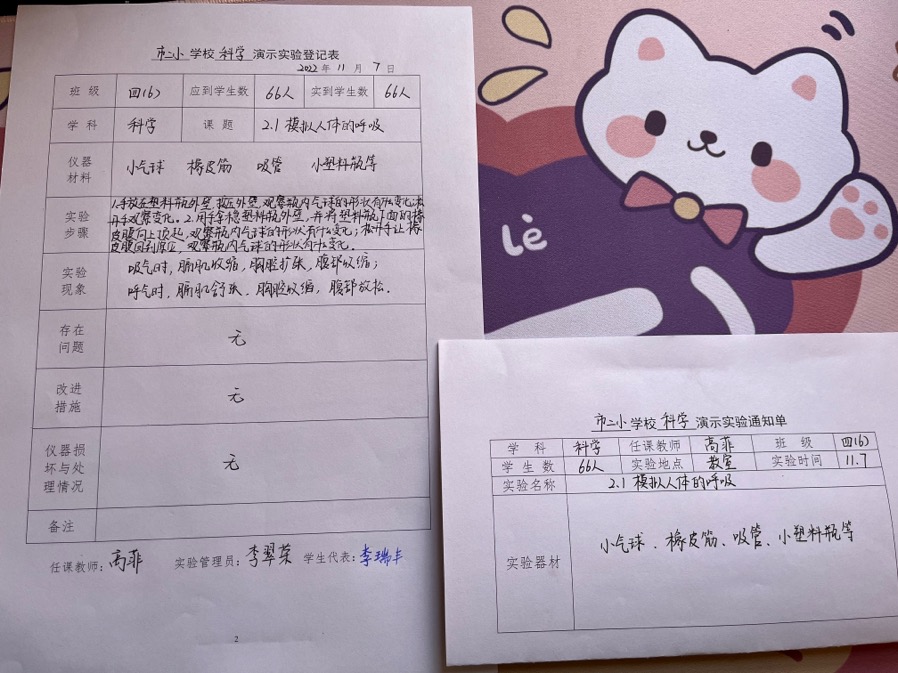 市二小学校科学演示实验登记表
2022年11月7日
班级 四(6) 应到学生数 66人 实到学生数 66人
学科 科学 课题 2.1模拟人体的呼吸
仪器材料 小气球 橡皮筋 吸管 小塑料瓶等
实验步骤
1.手放在塑料瓶外壁,挤压外壁,观察瓶内气球的形状有什么变化;松
开手观察变化。2.用手拿稳塑料瓶外壁,并将塑料瓶下面的橡
皮膜向上顶起,观察瓶内气球的形状有什么变化;松开手让橡
皮膜回到原位,观察瓶内气球的形状有什么变化。
实验现象
吸气时,膈肌收缩,胸腔扩张,腹部收缩;
呼气时,膈肌舒张,胸腔收缩,腹部放松.
存在问题 无
改进措施 无
仪器损坏与处理情况 无
备注
任课教师:高菲 实验管理员:李翠荣 学生代表:李瑞丰
2
lè
市二小学校科学演示实验通知单
学科 科学 任课教师 高菲 班级 四(6)
学生数 66人 实验地点 教室 实验时间 11.7
实验名称 2.1模拟人体的呼吸
实验器材 小气球、橡皮筋、吸管、小塑料瓶等